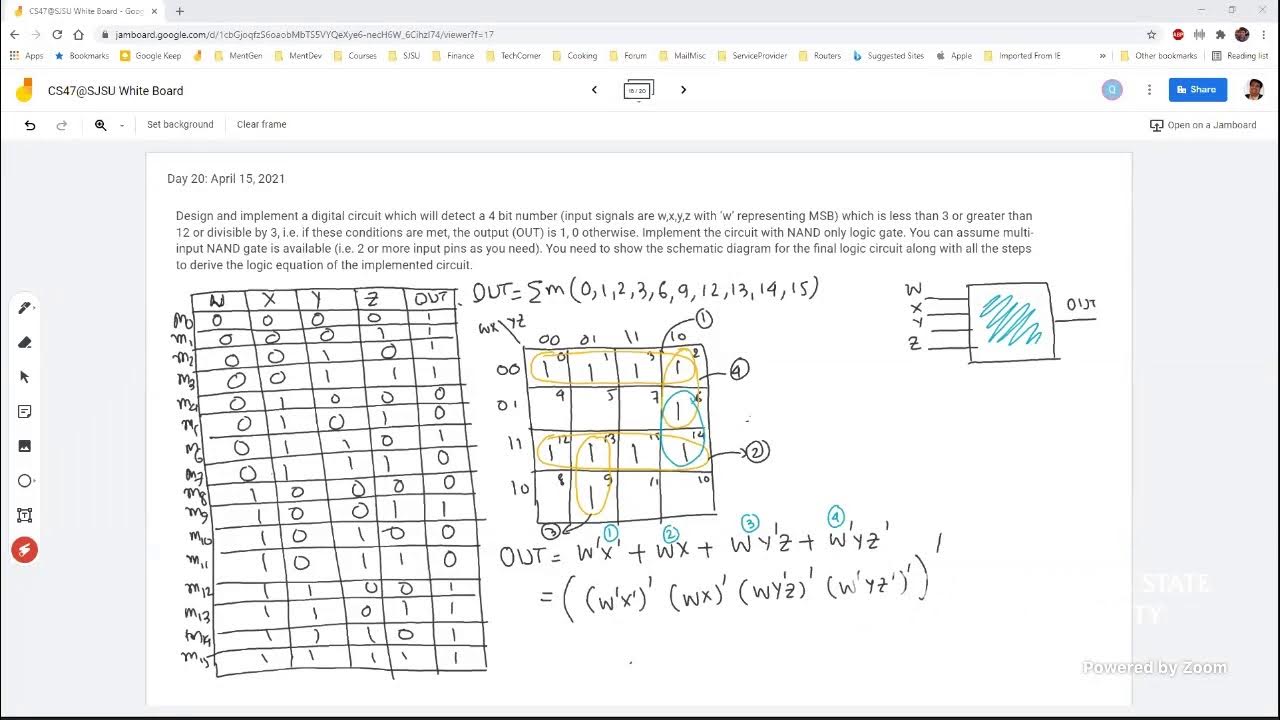 CS47@SJSU White Board - Goog
jamboard.google.com/d/1cbGjoqfzS6oaobMbTS5VYQeXye6-necH6W_6Cihzl74/viewer?f=17
Apps Bookmarks Google Keep MentGen MentDev Courses SJSU Finance TechCorner Cooking Forum MailMisc ServiceProvider Routers Suggested Sites Apple Imported From IE » Other bookmarks Reading list
CS47@SJSU White Board
18 / 20
Q
Share
Set background Clear frame
Open on a Jamboard
Day 20: April 15, 2021
Design and implement a digital circuit which will detect a 4 bit number (input signals are w,x,y,z with 'w' representing MSB) which is less than 3 or greater than
12 or divisible by 3, i.e. if these conditions are met, the output (OUT) is 1, 0 otherwise. Implement the circuit with NAND only logic gate. You can assume multi-
input NAND gate is available (i.e. 2 or more input pins as you need). You need to show the schematic diagram for the final logic circuit along with all the steps
to derive the logic equation of the implemented circuit.
W X Y Z OUT
m0 0 0 0 0 1
m1 0 0 0 1 1
m2 0 0 1 0 1
m3 0 0 1 1 1
m4 0 1 0 0 0
m5 0 1 0 1 0
m6 0 1 1 0 1
m7 0 1 1 1 0
m8 1 0 0 0 0
m9 1 0 0 1 1
m10 1 0 1 0 0
m11 1 0 1 1 0
m12 1 1 0 0 1
m13 1 1 0 1 1
m14 1 1 1 0 1
m15 1 1 1 1 1
OUT = Σm (0,1,2,3,6,9,12,13,14,15)
WX YZ
00 01 11 10 1
00 1 0 1 1 1 3 1 2
4
01 4 5 7 1 6
11 1 12 1 13 1 15 1 14
2
10 8 1 9 11 10
3
W
X
Y
Z
OUT
1 2 3 4
OUT = W'X' + WX + WY'Z + W'YZ'
= ((W'X')' (WX)' (WY'Z)' (W'YZ')')'
STATE
TY
Powered by Zoom